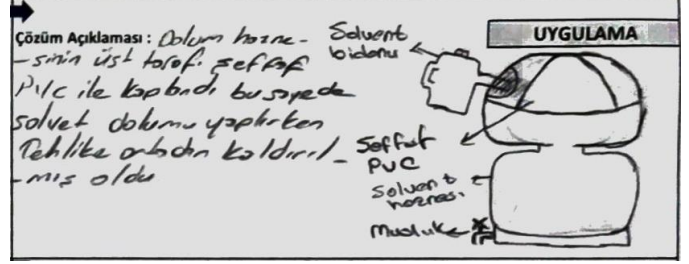 Çözüm Açıklaması : Dolum hazne-
-sinin üst tarafı şeffaf
PVC ile kaplandı bu sayede
solvet dolumu yapılırken
Tehlike ortadan kaldırıl-
-mış oldu
Solvent
bidonu
UYGULAMA
Şeffaf
PVC
Solvent
haznesi
Musluk